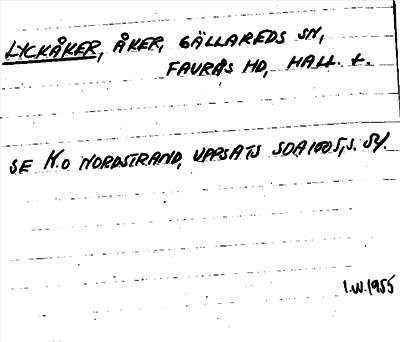 LYCKÅKER, ÅKER, GÄLLAREDS SN,
FAURÅS HD, HALL. L.
SE N.O NORDSTRAND, UPPSATS SOA 1005, S. 54.
I.W. 1955